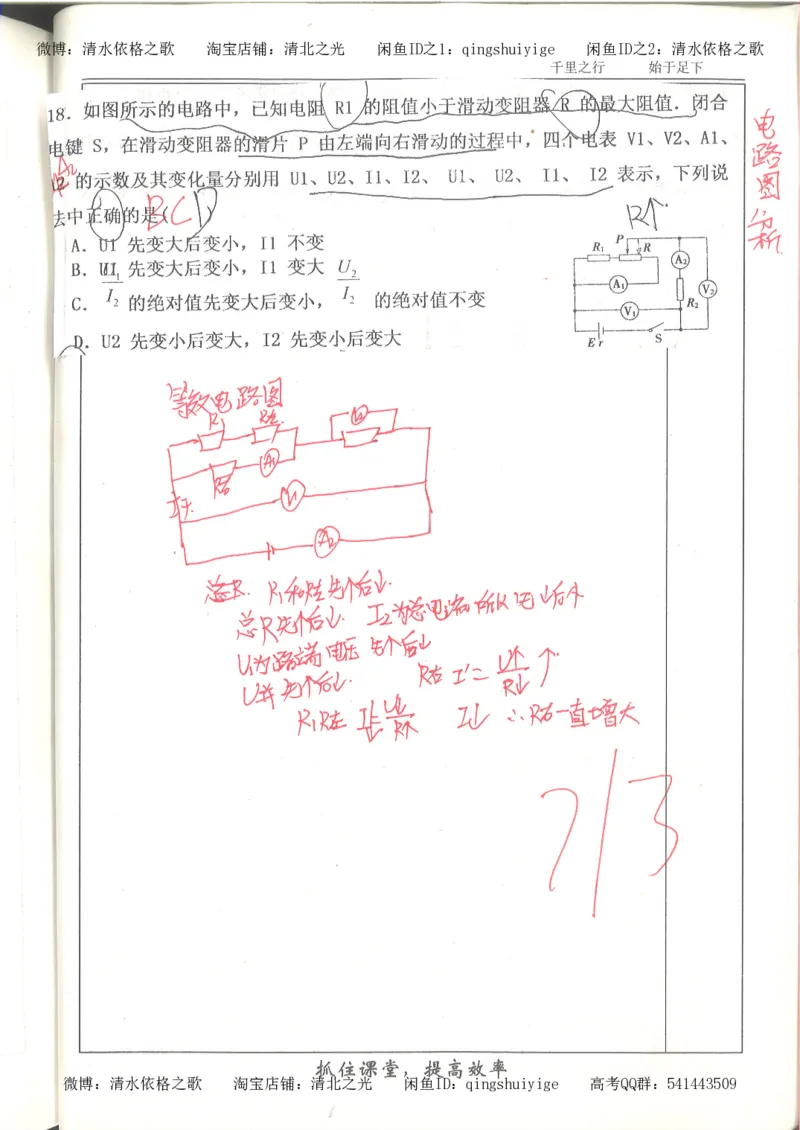 微博：清水依格之歌 淘宝店铺：清北之光 闲鱼ID之1：qingshuiyige 闲鱼ID之2：清水依格之歌
千里之行 始于足下
18．如图所示的电路中，已知电阻 R1 的阻值小于滑动变阻器 R 的最大阻值．闭合
电键 S，在滑动变阻器的滑片 P 由左端向右滑动的过程中，四个电表 V1、V2、A1、
A2 的示数及其变化量分别用 U1、U2、I1、I2、 U1、 U2、 I1、 I2 表示，下列说
法中正确的是( BCD )
A．U1 先变大后变小，I1 不变
B．U1 先变大后变小，I1 变大
C．U1/I2 的绝对值先变大后变小， U2/I2 的绝对值不变
D．U2 先变小后变大，I2 先变小后变大
R↑
R1 P R A2
A1 V2
V1 R2
E r S
电路图分析
等效电路图
R1 R左
A1
R右
V1
A2
总R. R1和R左先个后↓.
总R先个后↓. I2为总电流 所以先↓后个
U1为路端电压 先个后↓
U并先个后↓. R右 I'= U↑/R↓ ↑
R1R左 I↓= U↓/R↑ I↓ ∴R右一直增大
7/3
抓住课堂，提高效率
微博：清水依格之歌 淘宝店铺：清北之光 闲鱼ID：qingshuiyige 高考QQ群：541443509